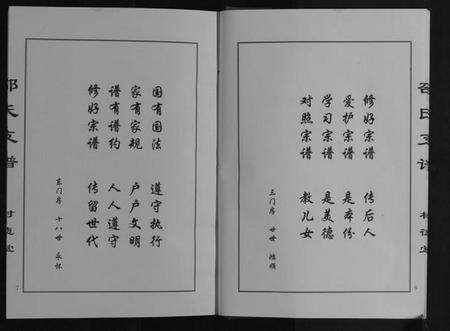 修好宗谱 传后人
爱护宗谱 是本份
学习宗谱 是美德
对照宗谱 教儿女
三门房 廿世
6
国有国法 遵守执行
家有家规 户户文明
谱有谱约 人人遵守
修好宗谱 传留世代
东门房 十八世
7
氏支谱